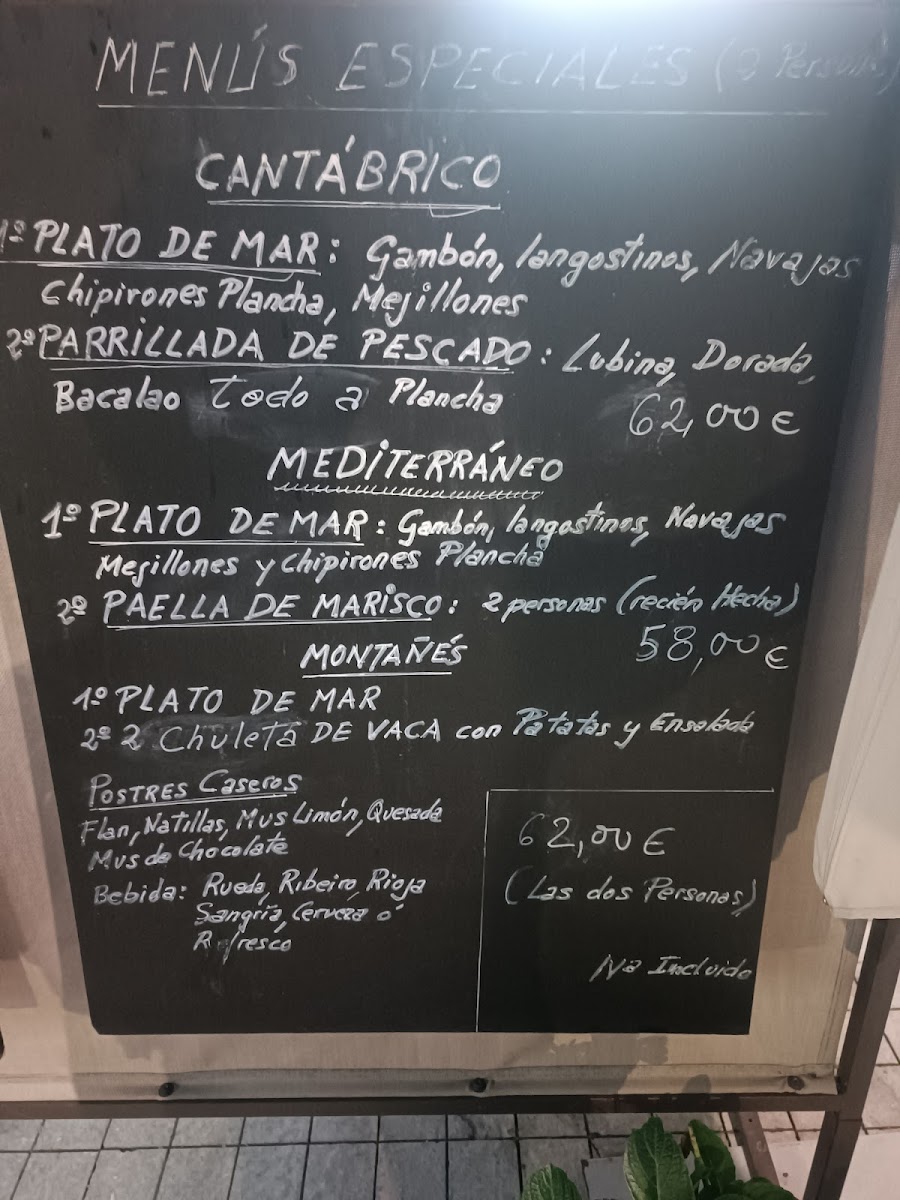 MENÚS ESPECIALES (2 Personas)
CANTÁBRICO
1º PLATO DE MAR: Gambón, langostinos, Navajas
Chipirones Plancha, Mejillones
2º PARRILLADA DE PESCADO: Lubina, Dorada,
Bacalao todo a Plancha
62,00 €
MEDITERRÁNEO
1º PLATO DE MAR: Gambón, langostinos, Navajas
Mejillones y Chipirones Plancha
2º PAELLA DE MARISCO: 2 personas (recién Hecha)
58,00 €
MONTAÑÉS
1º PLATO DE MAR
2º 2 Chuleta DE VACA con Patatas y Ensalada
Postres Caseros
Flan, Natillas, Mus Limón, Quesada
Mus de Chocolate
Bebida: Rueda, Ribeiro, Rioja
Sangría, Cerveza ó
Refresco
62,00 €
(Las dos Personas)
Iva Incluido